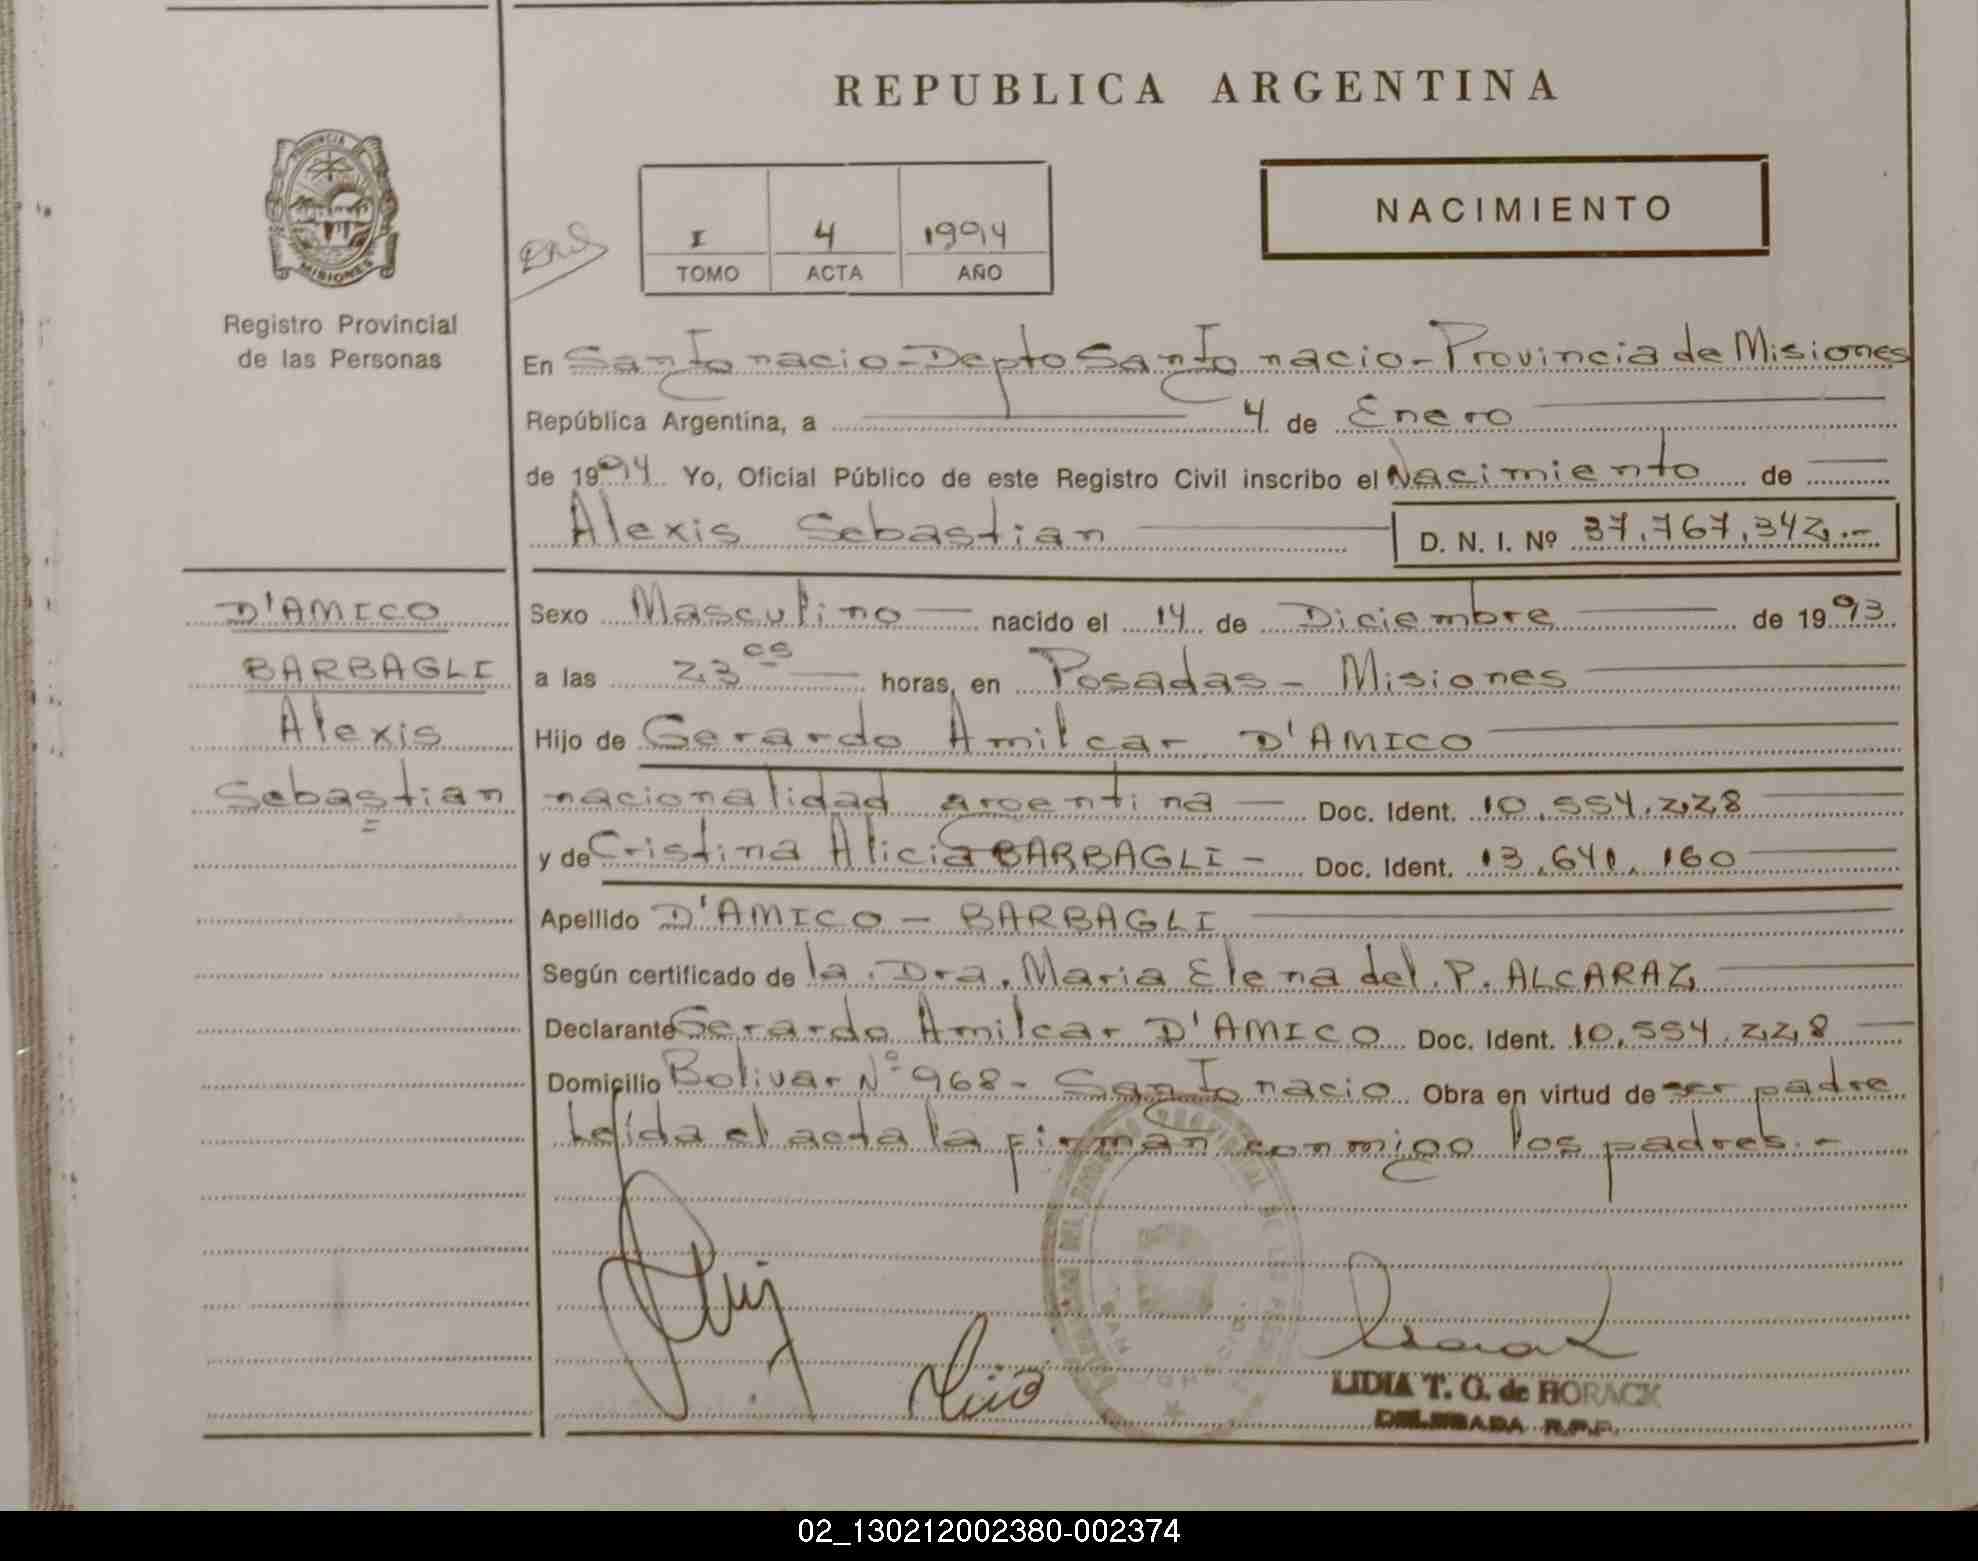 REPUBLICA ARGENTINA
PROVINCIA DE
MISIONES
Registro Provincial
de las Personas
I 4 1994
TOMO ACTA AÑO
NACIMIENTO
En San Ignacio - Depto San Ignacio - Provincia de Misiones
República Argentina, a 4 de Enero
de 1994 Yo, Oficial Público de este Registro Civil inscribo el Nacimiento de
Alexis Sebastian D. N. I. Nº 37.767.342.-
D'AMICO
BARBAGLI
Alexis
Sebastian
Sexo Masculino nacido el 14 de Diciembre de 1993
a las 23 horas, en Posadas - Misiones
Hijo de Gerardo Amilcar D'AMICO
nacionalidad argentina Doc. Ident. 10.554.228
y de Cristina Alicia BARBAGLI - Doc. Ident. 13.641.160
Apellido D'AMICO - BARBAGLI
Según certificado de la Dra. Maria Elena del P. ALCARAZ
Declarante Gerardo Amilcar D'AMICO Doc. Ident. 10.554.228
Domicilio Bolivar Nº 968 - San Ignacio Obra en virtud de ser padre
Leída el acta la firman conmigo los padres.-
LIDIA T. G. de HORACK
DELEGADA R.P.P.
02_130212002380-002374